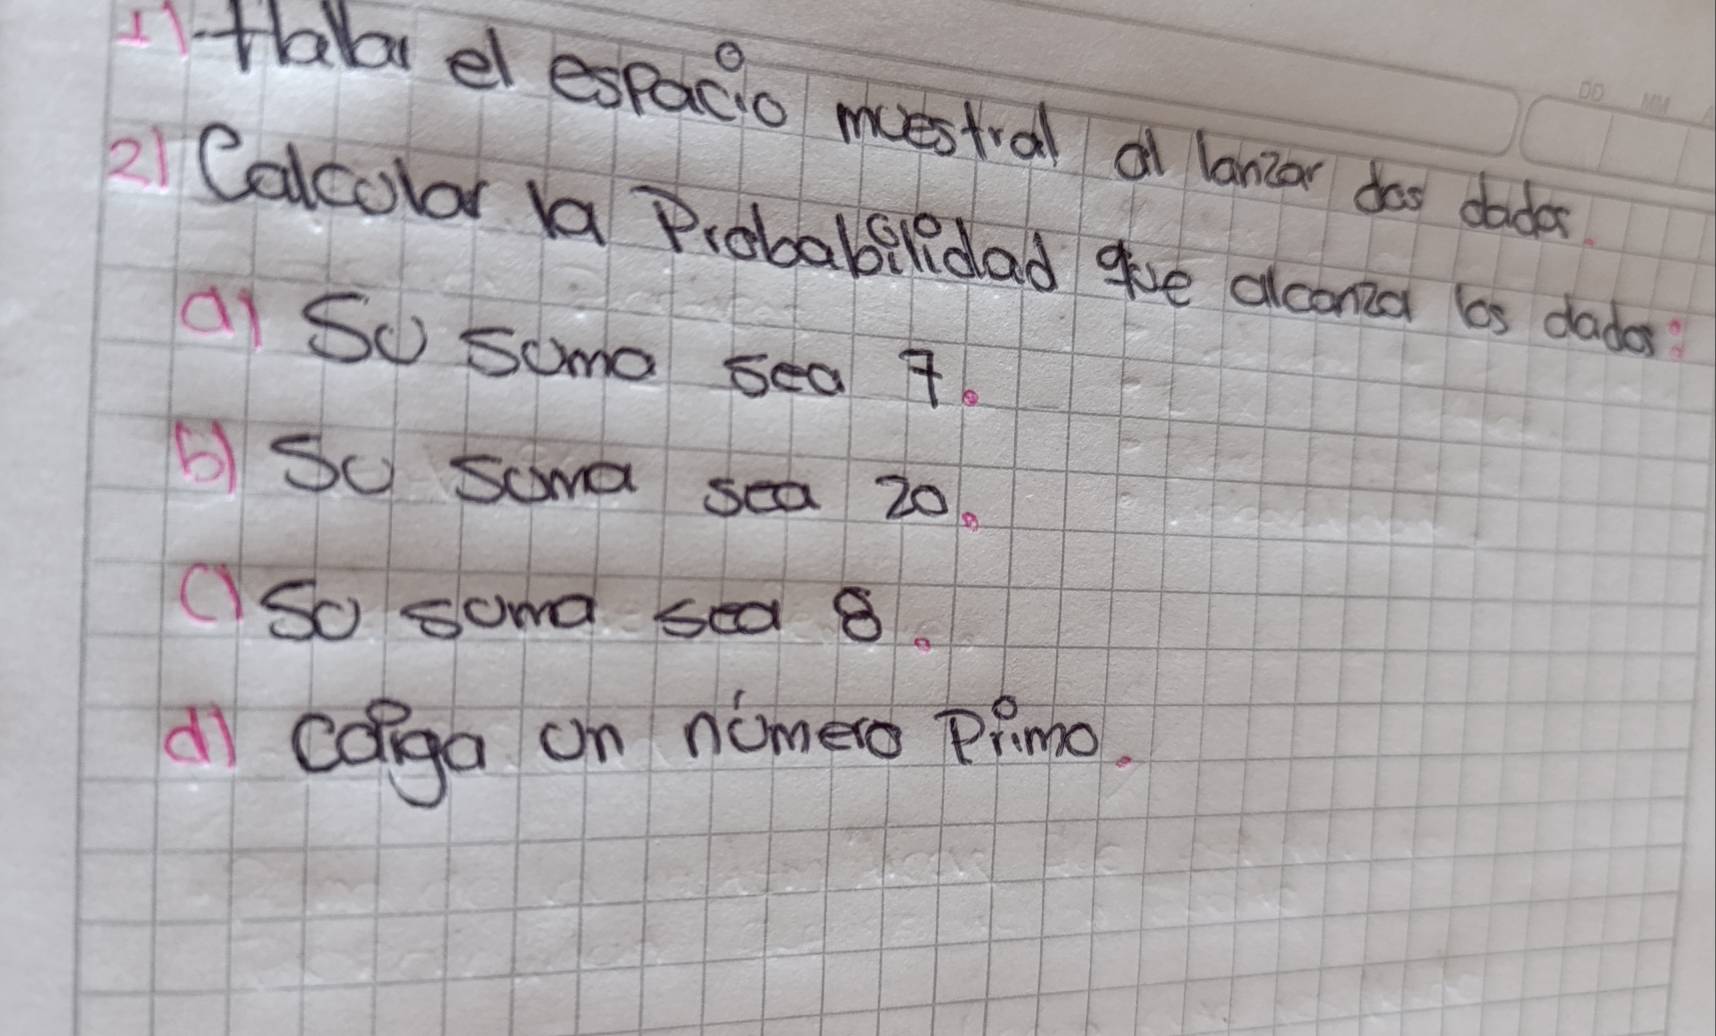 1) Hallar el espacio muestral al lanzar dos dados.
DD MM
2) Calcular la Probabilidad que alcanza los dados:
a) Su suma sea 7.
b) Su suma sea 20.
c) Su suma sea 8.
d) Caiga un número Primo.